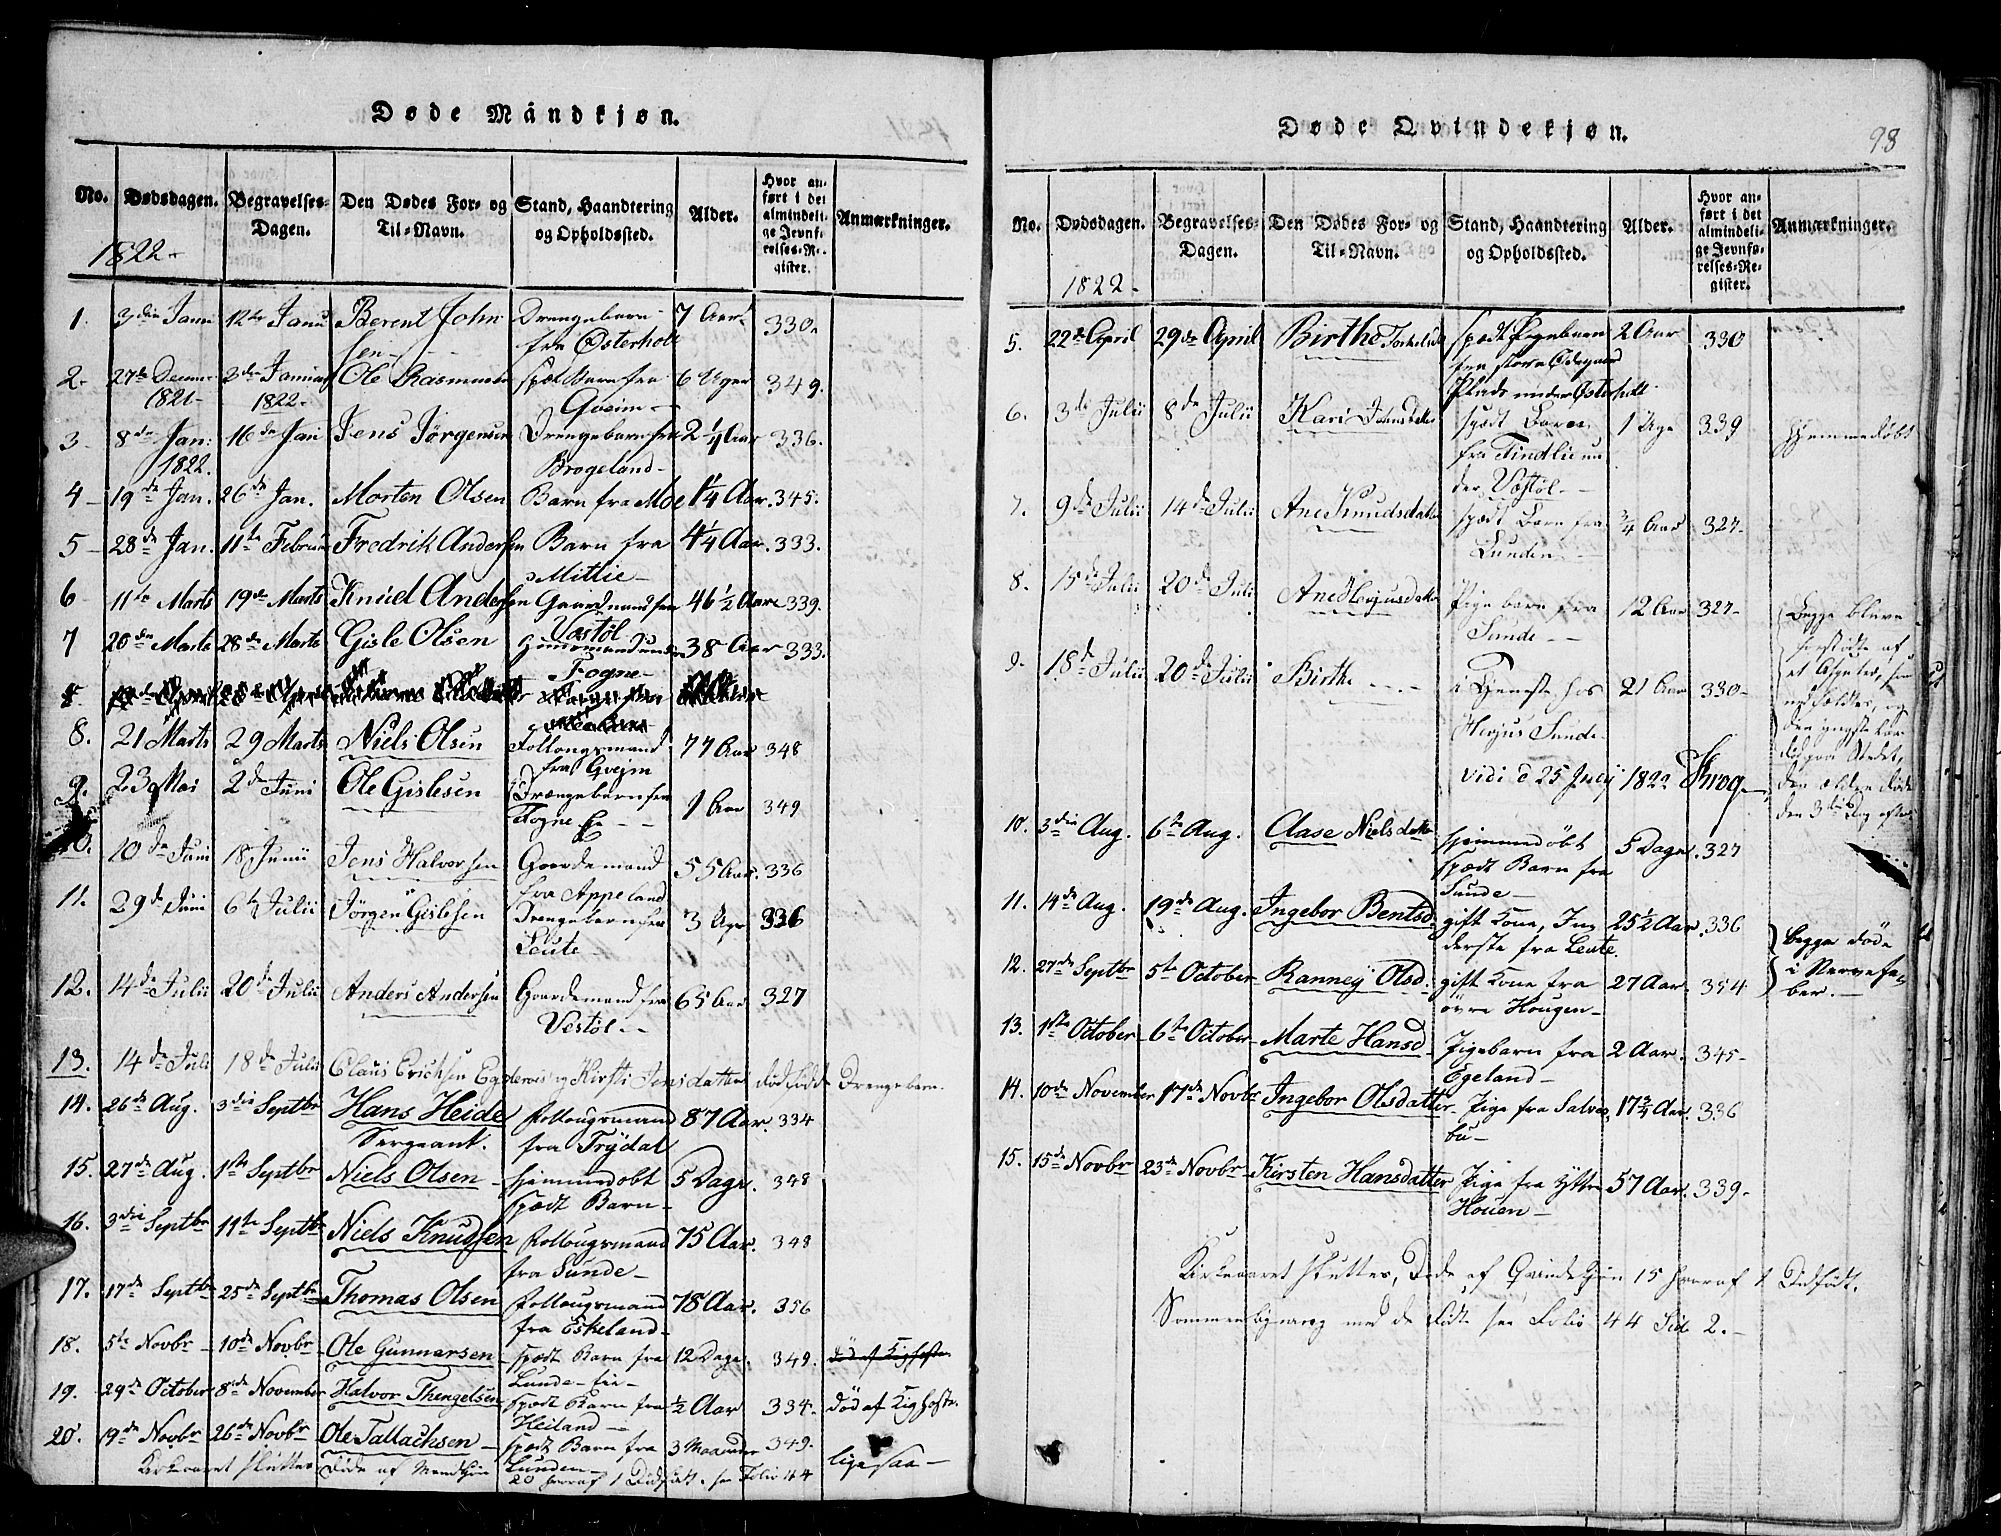 Døde Mandkjøn.
No. Dødsdagen. Begravelses-Dagen. Den Dødes For- og Til-Navn. Stand, Haandtering og Opholdssted. Alder. Hvor anført i det almindelige Jevnførelses-Register. Anmærkninger.
1822.
1. 3die Janu 12te Janu Berent John Drengebarn 7 Aar 330.
sen fra Østerholt
2. 27de Decem 3die Januar Ole Rasmusen spæd Barn fra 6 Uger 349.
1821 1822 Gveim
3 8de Jan: 16de Jan Jens Jørgensen Drengebarn fra 2 1/4 Aar 336.
1822. Brogeland
4 19de Jan. 26de Jan. Morten Olsen Barn fra Moe 1 1/4 Aar. 345.
5 28de Jan. 11te Februar Fredrik Andersen Barn fra 4 1/4 Aar. 333.
Mittie
6 11te Marts 19de Marts Knud Andersen Gaardmand fra 46 1/2 Aar 339.
Vestøl
7 20de Marts 28de Marts Gisle Olsen Huusmand under 38 Aar 333.
Fogne
8.
8. 21 Marts 29 Marts Niels Olsen Follougsmand 77 Aar 348
fra Gvejm
9. 23 Mai 2de Juni Ole Gislesen Drængebarn fra 1 Aar 349
Fogne
10. 10de Juni 18 Junii Jens Halvorsen Gaardemand 55 Aar. 336
fra Appeland
11. 29de Juni 6te Julii Jørgen Gislesen Drengebarn fra 3 Uger 336
Leute
12. 14de Julii 20de Julii Anders Andersen Gaardemand fra 65 Aar 327
Vestøl
13. 14de Juli 18de Julii Claus Erichsen og Kirsti Jensdatters dødfødte Drengebarn.
14. 26de Aug. 3die Septbr Hans Heide Follougsmand 87 Aar. 334
Sergeant. fra Trydal
15. 27de Aug. 1ste Septbr Niels Olsen hjemmedøbt 5 Dage. 348
spædt Barn
16. 3die Septbr 11te Septbr Niels Knudsen Follougsmand 75 Aar. 348
fra Sunde
17. 17de Septbr 25de Septbr Thomas Olsen Follougsmand 78 Aar. 356
fra Eskeland
18. 5te Novbr 10de Novbr Ole Gunnarsen spædt Barn fra 12 Dage. 349. død af Kighoste
Lunde
19. 29de October 8de November Halvor Thengelsen spædt Barn fra 1/2 Aar 334. død af Kighoste.
Heiland
20. 19de Novbr 26de Novbr Ole Tallachsen spædt Barn fra 3 Maaneder 349. ligesaa
Lunden
Kirkeaaret sluttes døde af Mandkjøn 20 hvoraf 1 Dødfødt. see Folio 44
Døde Qvindekjøn.
98
No. Dødsdagen. Begravelses-Dagen. Den Dødes For- og Til-Navn. Stand, Haandtering og Opholdssted. Alder. Hvor anført i det almindelige Jevnførelses-Register. Anmærkninger.
1822
5. 22de April 29de April Birthe Torkelsd spædt Pigebarn 2 Aar 330
fra store Ødegaard
Plads under Østerholt
6. 3die Julii 8de Julii Kari Jensdatter spædt Barn 1 Uge 339 Hjemmedøbt
fra Tindlie un
der Vestøl
7. 9de Julii 14de Julii Ane Knudsdatter spædt Barn fra 3/4 Aar 327
Lunden
8. 15de Julii 20de Juli Ane Herjusdatter Pigebarn fra 12 Aar 327
Sunde
9. 18de Julii 20de Julii Birthe i Tjeneste hos 21 Aar 330
Herjus Sunde
Begge bleve
af
et
nedfældtes, og
den yngste bar
død paa Stedet,
den ældere døde
den 3die Dag efter
Vidi d 25 July 1822 Krog
10. 3die Aug. 6te Aug. Aase Nielsdatter hjemmedøbt 5 Dage. 327
spædt Barn fra
Sunde
11. 14de Aug. 19de Aug. Ingebor Bentsd. gift Kone, In 25 1/2 Aar. 336
derste fra Leute.
12. 27de Septbr 5te October Ranney Olsd. gift Kone fra 27 Aar. 354
øvre Hougen
begge døde
i Nervefe
ber.
13. 1ste October 6te October Marte Hansd Pigebarn fra 2 Aar. 345
Egeland
14. 10de November 17de Novbr Ingebor Olsdatter Pige fra Salves 17 3/4 Aar. 336
bu
15. 15de Novbr 23de Novbr Kirsten Hansdatter Pige fra Yttre 57 Aar. 339.
Houen
Kirkeaaret sluttes, Døde af Qvindekjøn 15 hvoraf 1 Dødfødt.
Sammenligning med de fødte see Folio 44 Side 2.